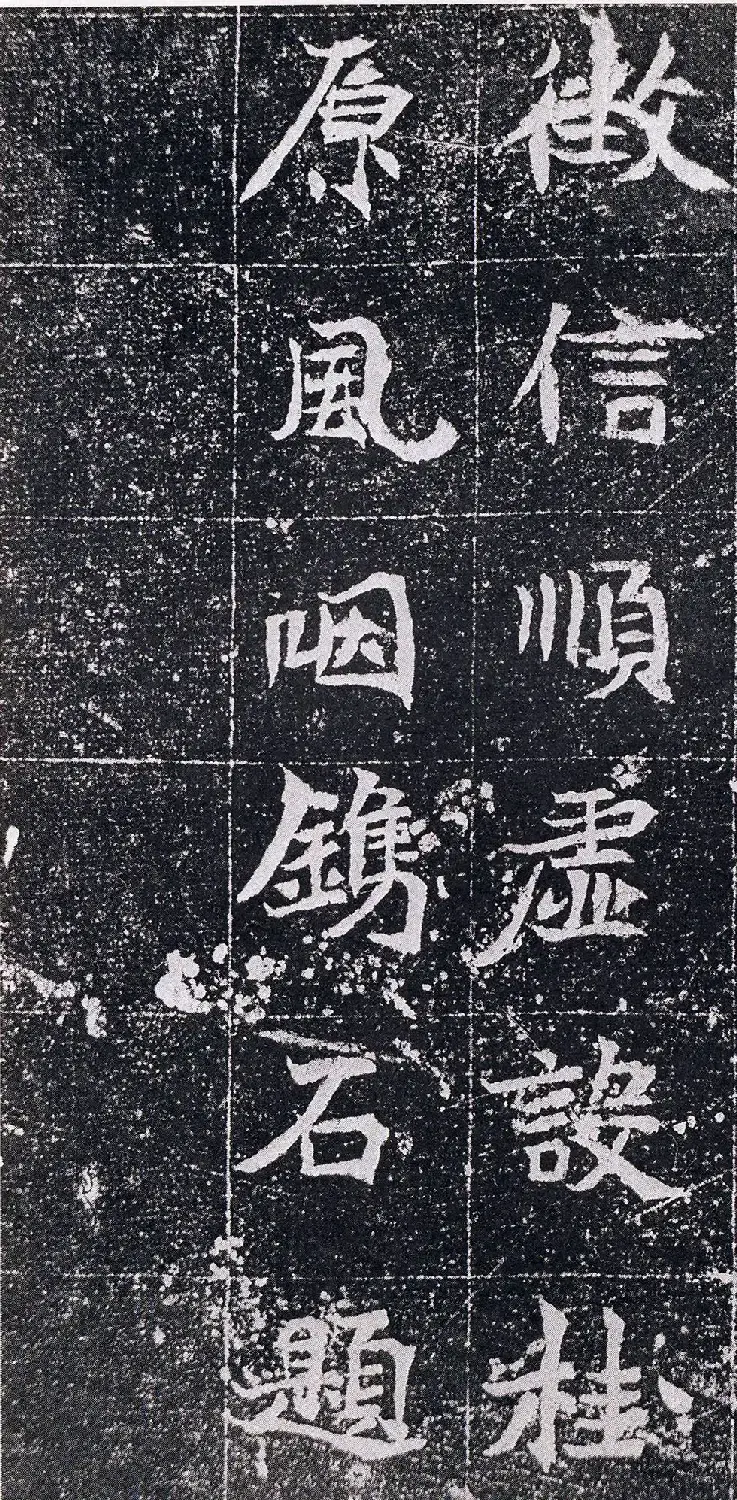 徴信順虛設桂
原風咽鐫石題